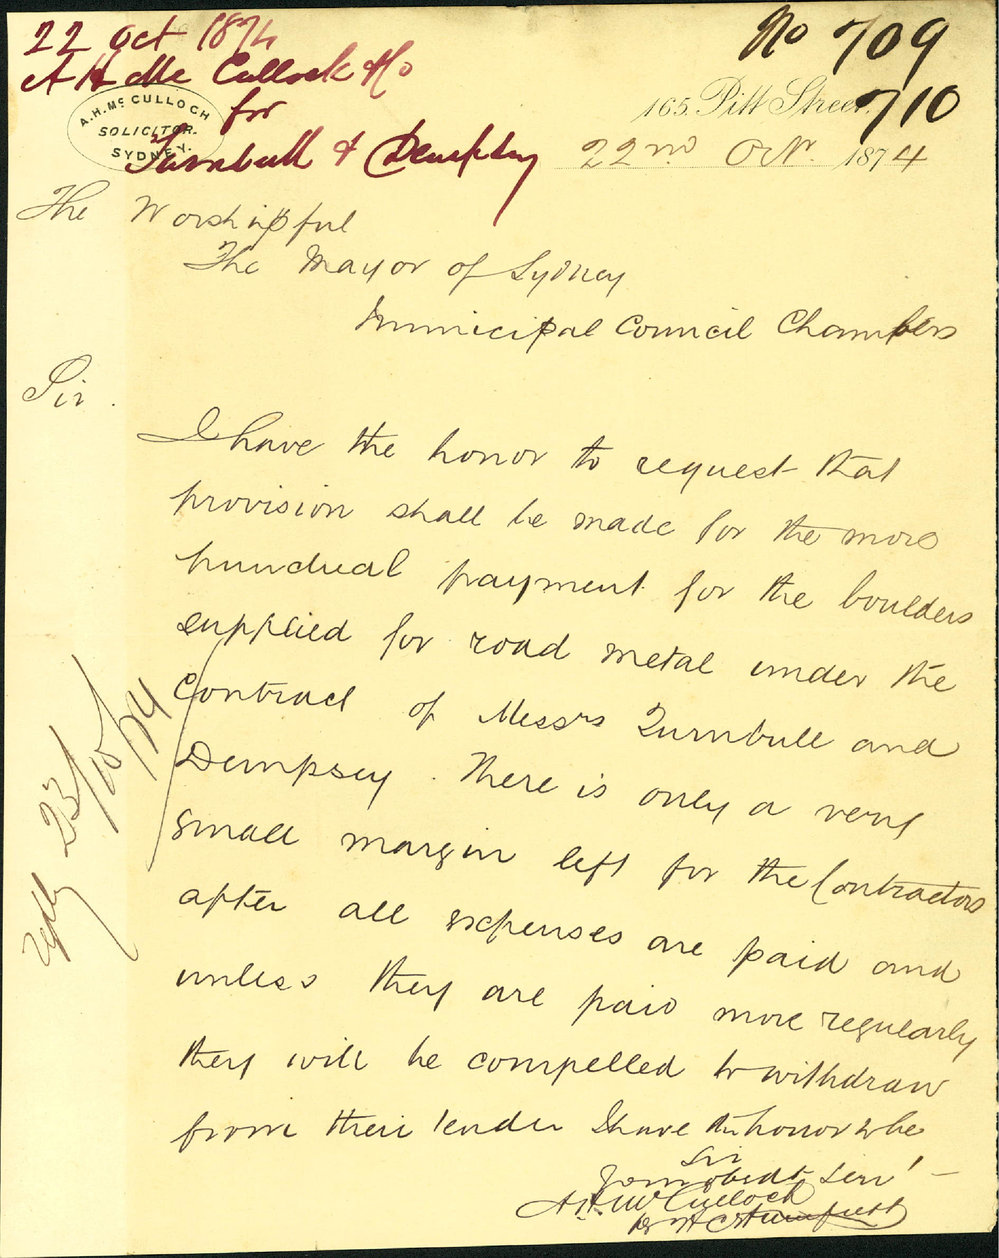 22 Oct 1874
A H Mc Cullock
for
Turnbull & Dempsey
No 709
710
A.H. Mc CULLOCH
SOLICITOR.
SYDNEY.
165. Pitt Street,
22nd Oct. 1874
The Worshipful
The Mayor of Sydney
Municipal Council Chambers
Sir.
I have the honor to request that
provision shall be made for the more
punctual payment for the boulders
supplied for road metal under the
Contract of Messrs Turnbull and
Dempsey. There is only a very
small margin left for the Contractors
after all expenses are paid and
unless they are paid more regularly
they will be compelled to withdraw
from their tender I have the honor to be
Sir
Your obedt Servt
A.H. McCulloch
reply 23/10/74